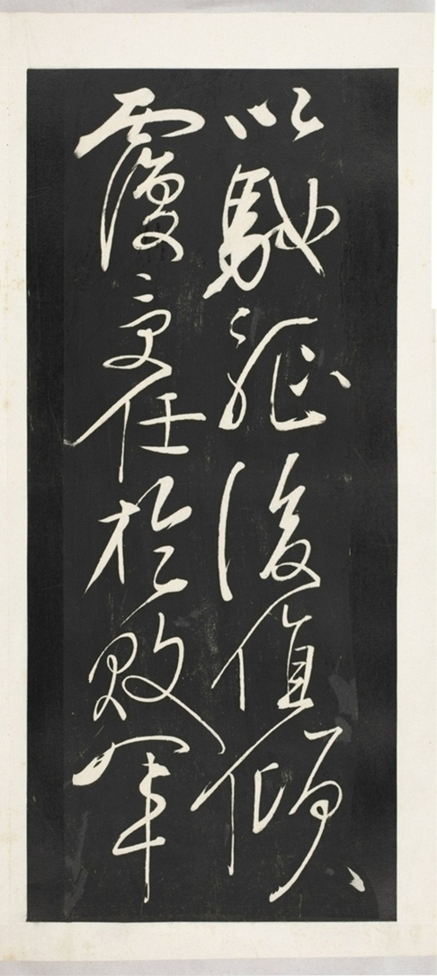 以馳驅後值傾
覆受任於敗軍